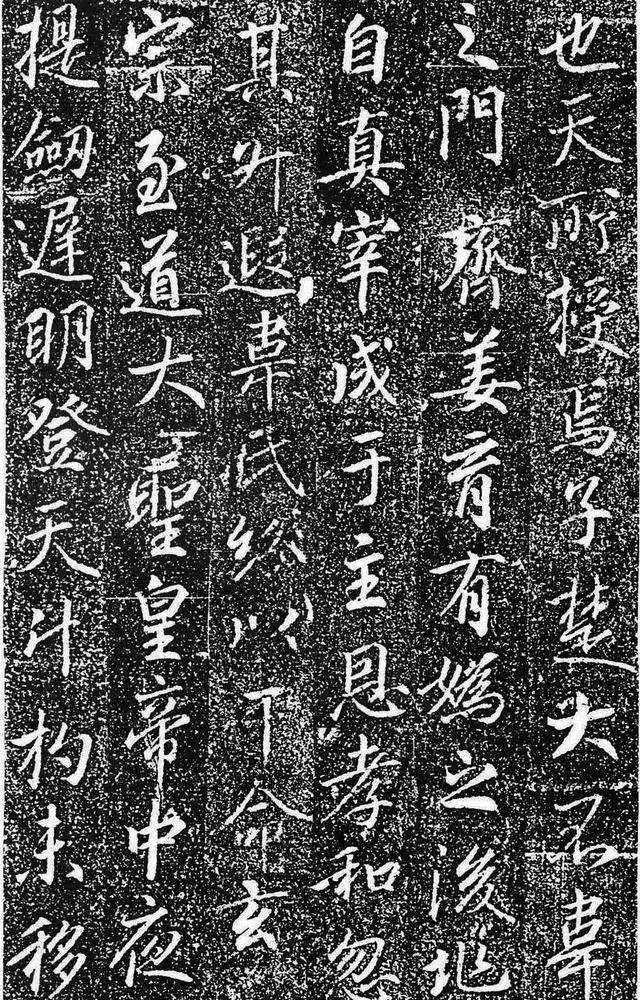 也天所授焉子楚大不韋
之門齊姜育有嬀之後
自真宰成于主恩孝和忽
其升遐韋氏終以下命玄
宗至道大聖皇帝中夜
提劒遲明登天斗杓未移